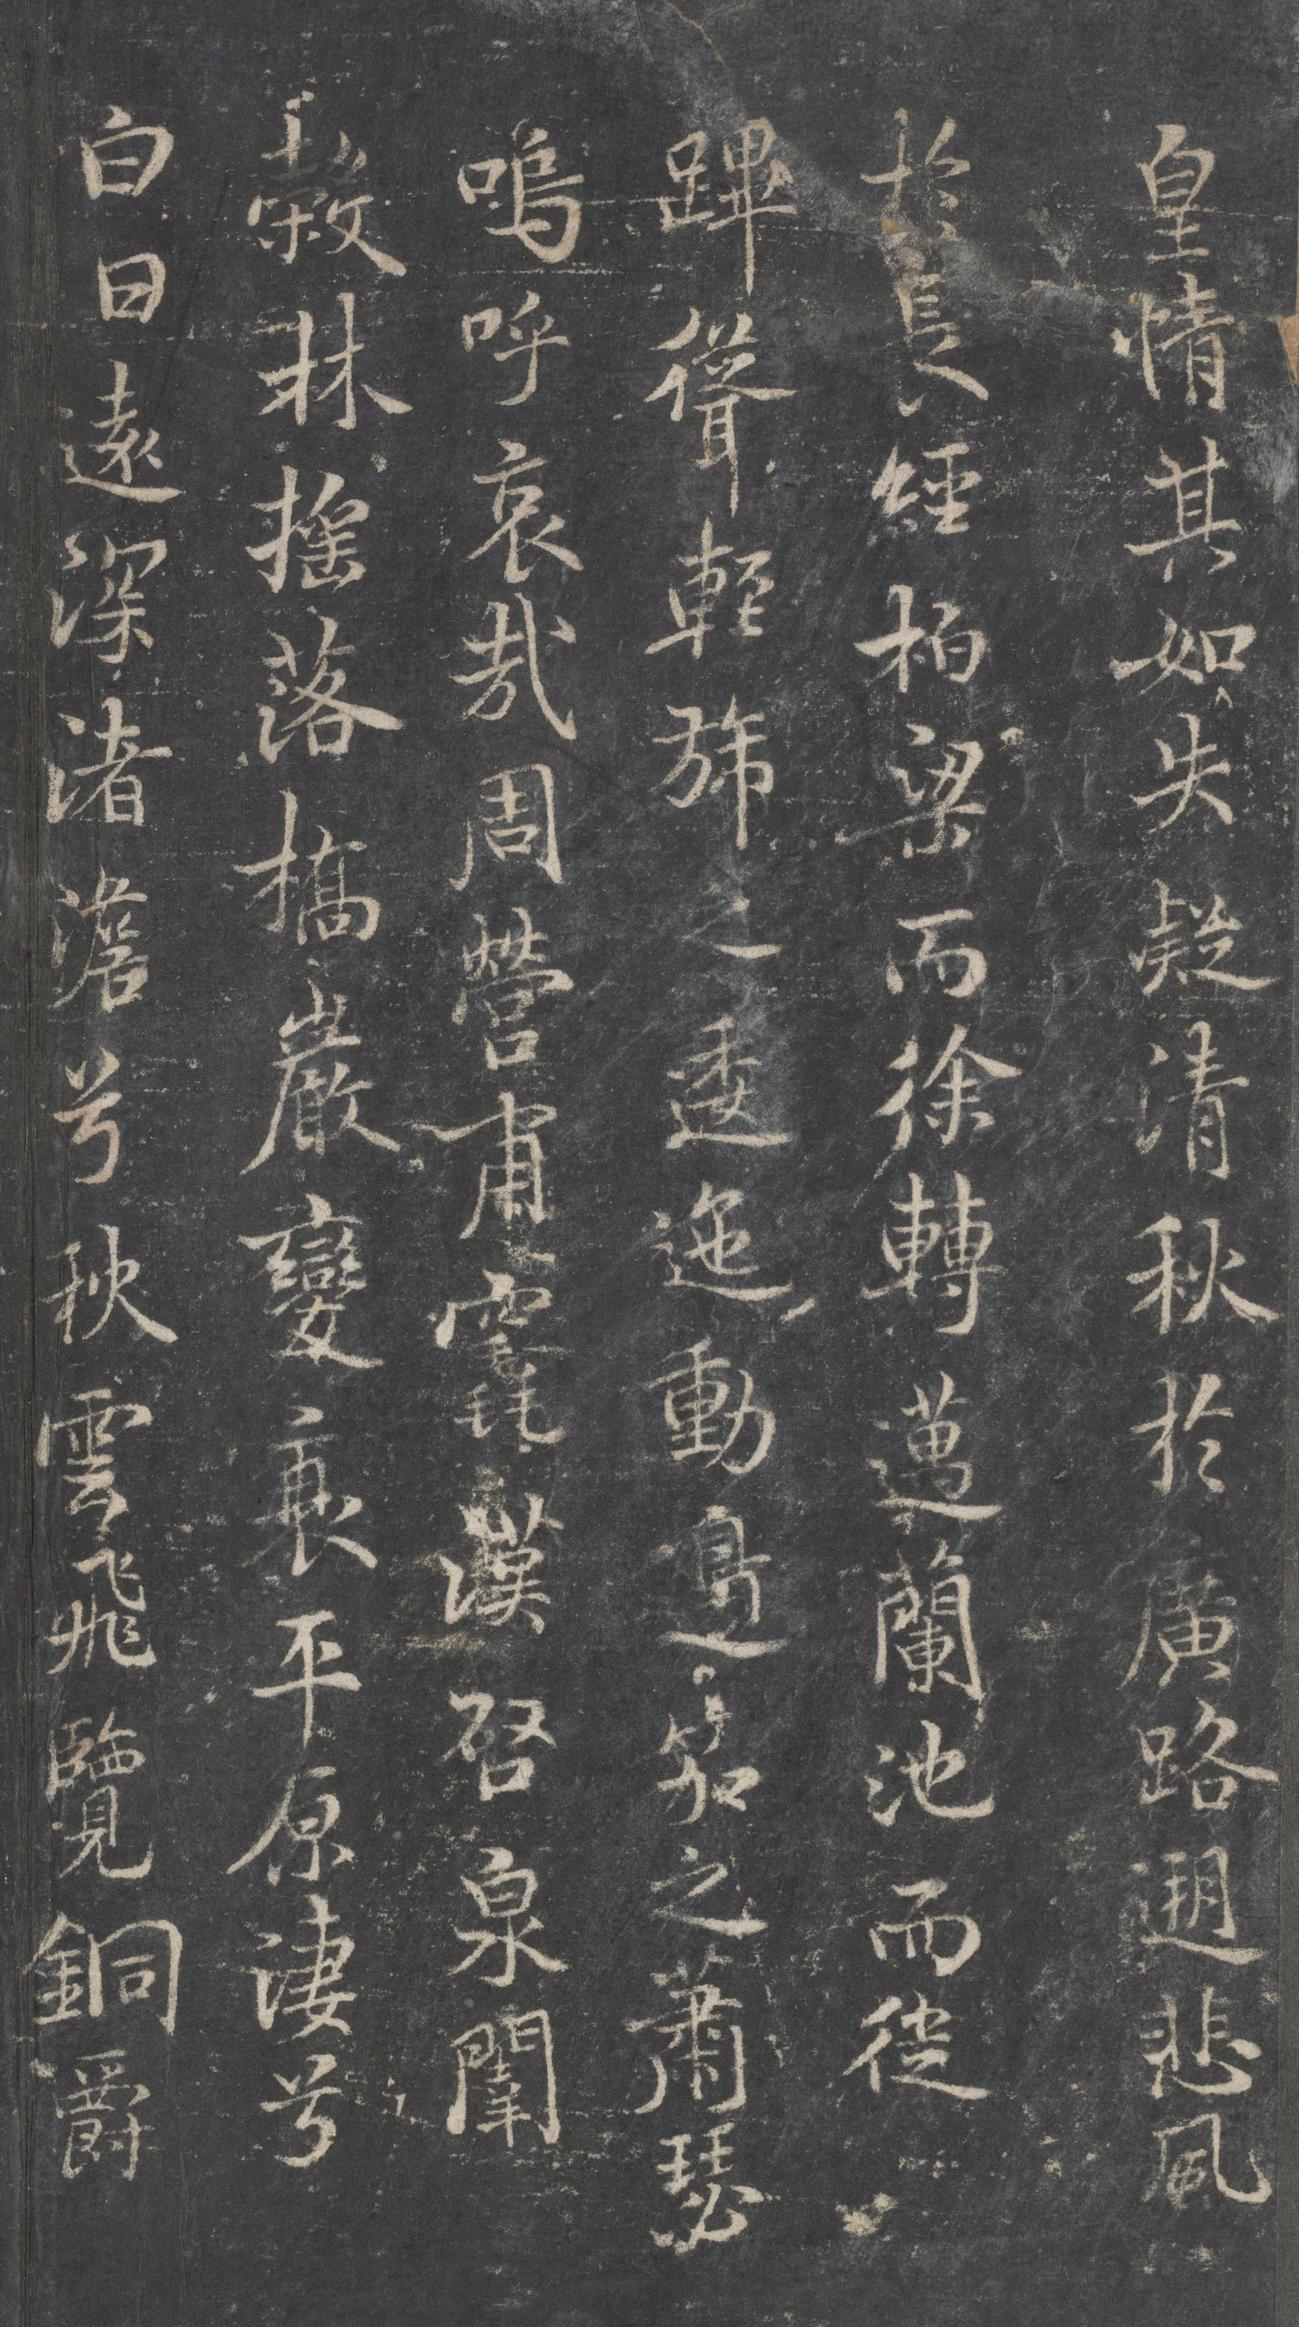 皇情其如失疑清秋於廣路遡悲風
於長經柏梁而徐轉邁蘭池而從
蹕聳輕旆之逶迤動邊笳之蕭瑟
嗚呼哀哉周營肅霓漢啓泉闈
穀林搖落橋巖變衰平原淒兮
白日遠深渚澹兮秋雲飛臨覽銅爵